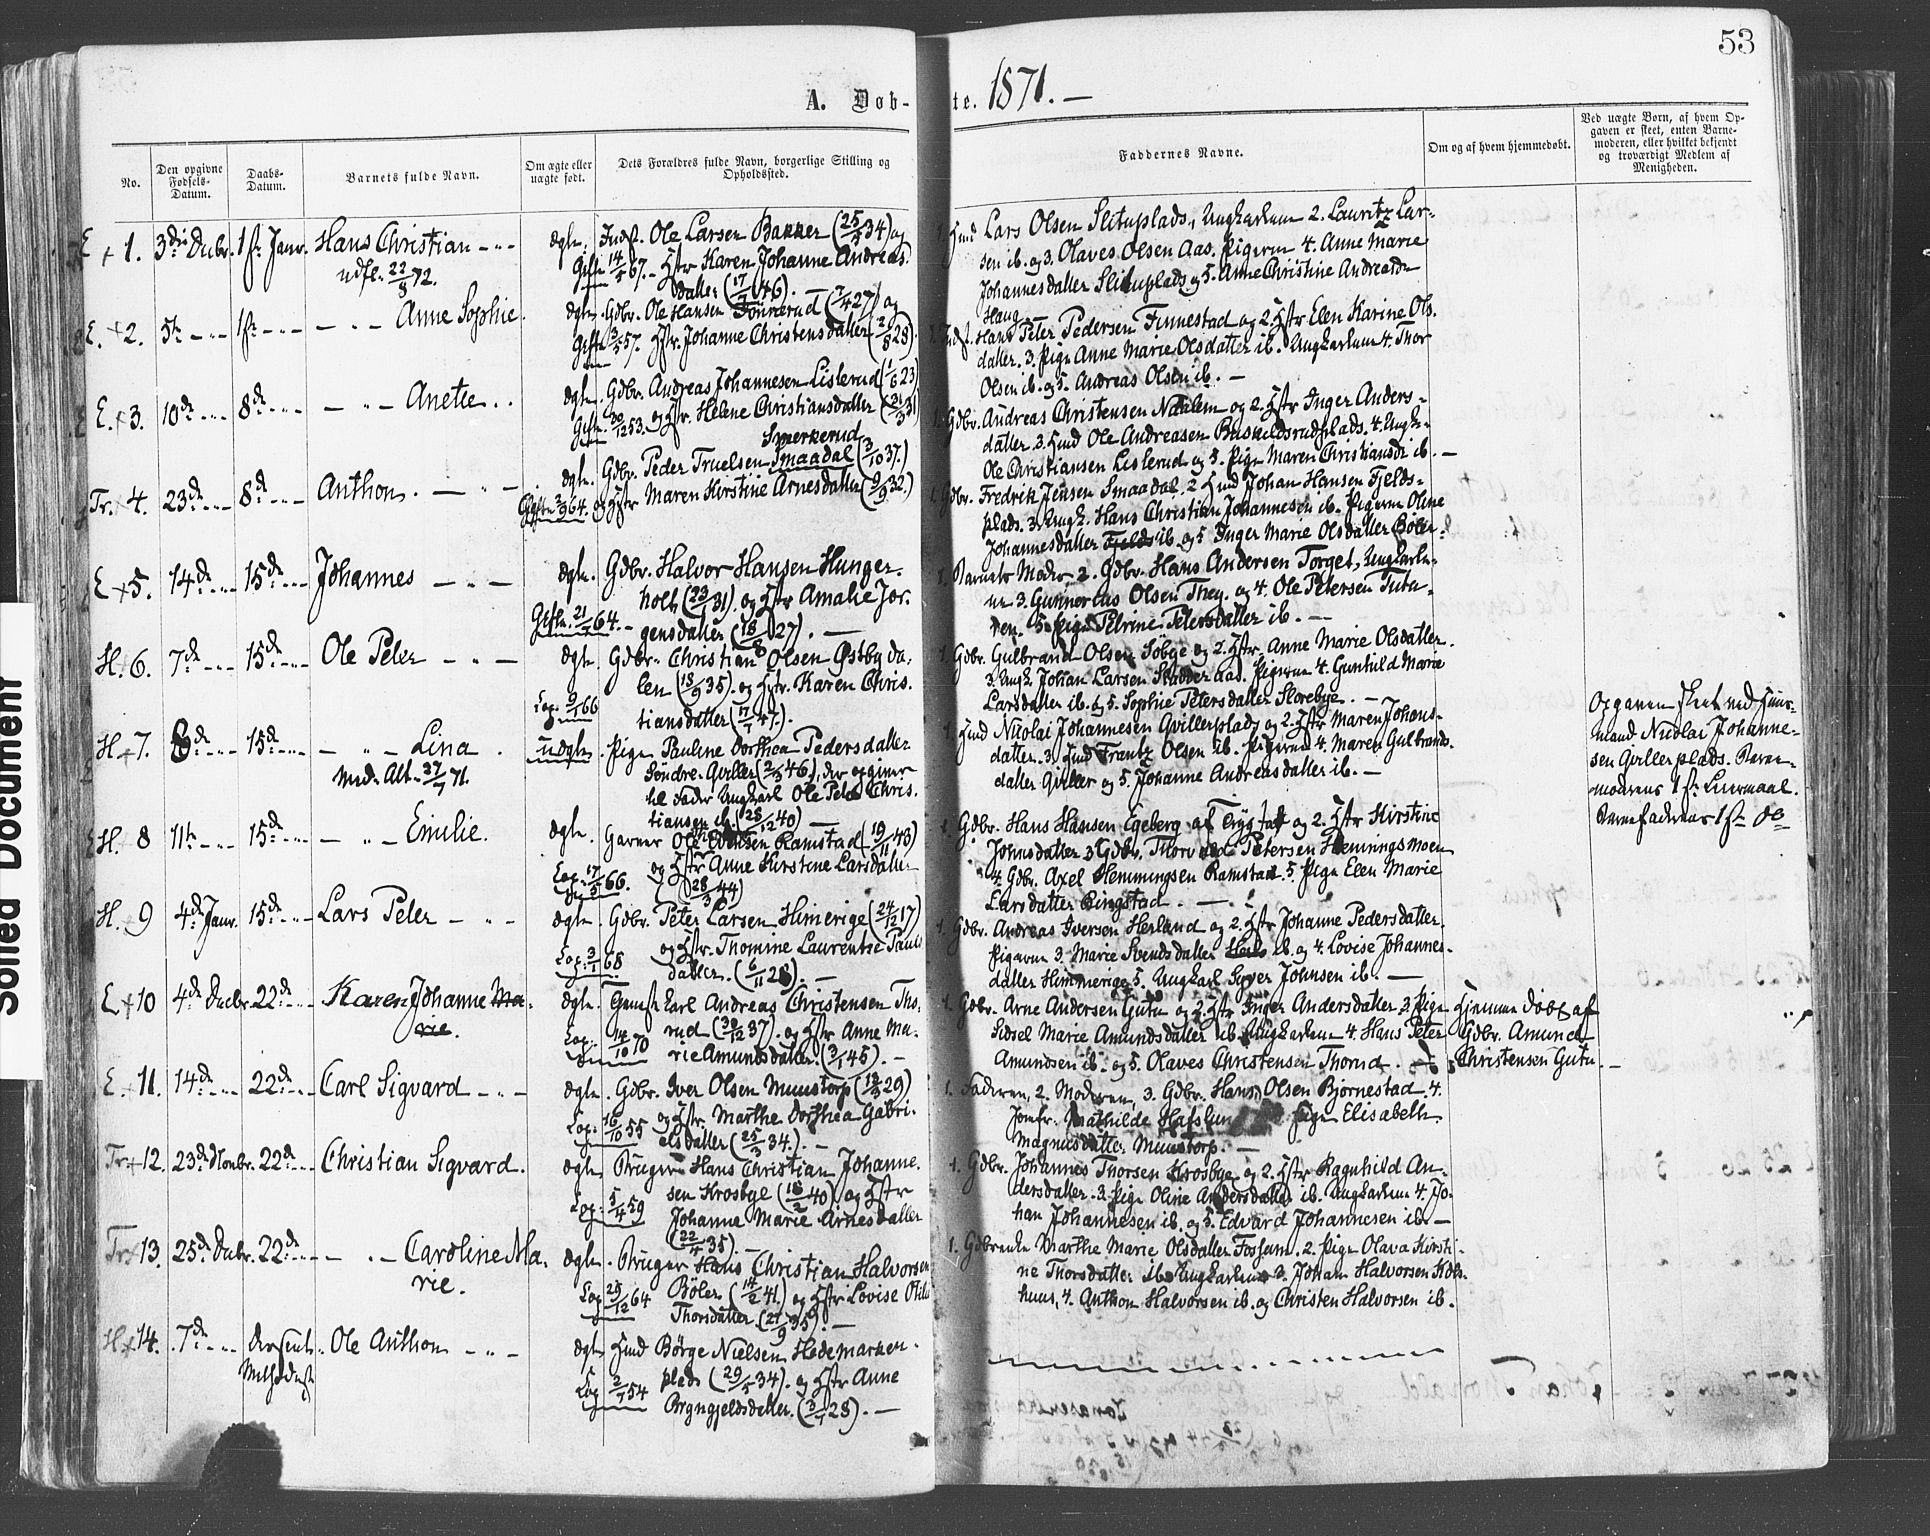 53
A. Døb-
te. 1871. —
No.
Den opgivne Fødsels-Datum.
Daabs-Datum.
Barnets fulde Navn.
Om ægte eller uægte født.
Dets Forældres fulde Navn, borgerlige Stilling og Opholdssted.
Faddernes Navne.
Om og af hvem hjemmedøbt.
Ved uægte Børn, af hvem Op-
gaven er skeet, enten Barne-
moderen, eller hvilket bekjendt
og troværdigt Medlem af
Menigheden.
E + 1. 3die Decbr. 1ste Janr. Hans Christian
udfl. 22/8 72.
ægte. Indst. Ole Larsen Bakker (25/5 34) og
Gift 14/5 67. Hstr Karen Johanne Andreas
datter (17/7 46). —
Lars Olsen Slituplads, Ungkarlene 2. Lauritz Lar-
sen ib. og 3. Olaves Olsen Aas. Pigerne 4. Anne Marie
Johannesdatter Slituplads og 5. Anne Christine Andreasdr
Haug
E. + 2. 5te 1ste Anne Sophie.
ægte. Gdbr. Ole Hansen Sönnerud (7/4 27) og
Gift 3/5 57. Hstr. Johanne Christensdatter (2/8 29).
Indst. Hans Peter Pedersen Finnestad og 2. Hstr Elen Karine Ols-
datter. 3. Pige Anne Marie Olsdatter ib. Ungkarlene 4. Thor
Olsen ib. og 5. Andreas Olsen ib. —
E. + 3. 10de 8de Anette
ægte. Gdbr. Andreas Johannesen Lislerud (1/6 23)
Gift. 30/12 53. og Hstr. Helene Christiansdatter (31/3 31)
1. Gdbr. Andreas Christensen Naalem og 2. Hstr Inger Anders-
datter. 3. Hmd Ole Andreasen Buskildsrudplads. 4. Ungk.
Ole Christiansen Lislerud og 5. Pige Maren Christiansdr ib. —
Tr. + 4. 23de 8de Anthon. —
Smerkerud
ægte. Gdbr. Peder Truelsen Smaadal (3/10 37.)
Gift 3/9 64. og Hstr Maren Kirstine Arnesdatter (9/9 32.)
1. Gdbr. Fredrik Jensen Smaadal. 2 Hmd Johan Hansen Fjelds-
plads. 3. Ungk. Hans Christian Johannesen ib. Pigerne Oline
Johannesdatter Fjelds ib. og 5 Inger Marie Olsdatter Böler.
E + 5. 14de 15de Johannes
ægte. Gdbr. Halvor Hansen Hunger-
holt (23/1 31) og Hstr Amalie Jör-
Gift. 21/7 64. gensdatter (18/8 27). —
1. Barnets Moder, 2. Gdbr. Hans Andersen Torget, Ungkarle-
ne 3. Gunnerius Olsen They. og 4. Ole Petersen Tuta-
ren. 5. Pige Petrine Petersdatter ib. —
H. + 6. 7de 15de Ole Peter
ægte. Gdbr. Christian Olsen Østby da-
len (18/9 35) og Hstr. Karen Chris-
Cop. 9/1 66 tiansdatter (17/7 47.)
1. Gdbr. Gulbrand Olsen Söbye og 2. Hstr. Anne Marie Olsdatter.
3. Ungk Johan Larsen Skudder aas. Pigerne 4. Gunhild Marie
Larsdatter ib. og 5. Sophie Petersdatter Slorebye. —
H. + 7. 8de 15de Lina
Med. Alt. 27/7 71.
uægte. Pige Pauline Dorthea Pedersdatter
Søndre Gviller (2/3 46), der opgiver
til Fader Ungkarl Ole Peter Chris-
tiansen ib. (28/12 40) —
1. Hmd Nicolai Johannesen Gvillerplads og 2. Hstr Maren Johans-
datter. 3. Hmd Frantz Olsen ib. Pigerne 4. Maren Gulbrands-
datter Gviller og 5. Johanne Andreasdatter ib. —
Opgaven skeet ved Huus-
mand Nicolai Johanne-
sen Gvillerplads. Barne-
moderens 1ste Leiermaal.
Barnefaderens 1ste do
H. + 8 11te 15de Emilie.
ægte. Garver Ole Evensen Ramstad (19/11 43)
Cop. 17/5 66. og Hstr Anne Kirstine Larsdatter
(28/3 44)
Gdbr. Hans Hansen Egeberg af Trygstad og 2. Hstr Kirstine
Johnsdatter 3 Gdbr. Thorvald Petersen Hemmingsmoen
4. Gdbr. Axel Hemmingsen Ramstad. 5. Pige Elen Marie
Larsdatter Ringstad. —
H. + 9 4de Janr. 15de Lars Peter
ægte. Gdbr. Peter Larsen Himerige (24/12 17)
Cop. 3/1 68 og Hstr. Thomine Laurentze Pauls
datter. (6/11 28). —
1. Gdbr. Andreas Iversen Herland og 2. Hstr Johanne Pedersdatter.
Pigerne 3. Marie Svendsdatter ib. og 4. Lovise Johannes-
datter Himmerige 5. Ungkarl Syver Johnsen ib. —
E + 10 4de Decbr 22de Karen Johanne Ma-
rie.
ægte. Carl Andreas Christensen Tho-
rud (30/12 37). og Hstr Anne Ma-
Cop. 14/10 70 rie Amundsdatter. (3/1 45). —
1. Gdbr. Arne Andersen Gutu og 2. Hstr Inger Andersdatter. 3. Pige
Sidsel Marie Amundsdatter ib. Ungkarlene 4. Hans Peter
Amundsen ib. og 5. Olaves Christensen Thorud.
Hjemme døbt af
Gdbr. Amund
Christensen Gutu. —
E. + 11. 14de 22de Carl Sigvard
ægte. Gdbr. Iver Olsen Muustorp (12/3 29)
Cop. 16/10 55 og Hstr. Marthe Dorthea Gabri-
elsdatter (25/3 34.) —
1. Faderen, 2. Moderen, 3. Gdbr. Hans Olsen Bjørnestad. 4.
Jomfr. Mathilde Hafslun Pige Elisabeth
Magnusdatter Muustorp. —
Tr. + 12. 23de Novbr. 22de Christian Sigvard.
ægte Bruger Hans Christian Johanne-
sen Krosbye (18/2 40) og Hstr
Cop. 5/4 59 Johanne Marie Arnesdatter
(22/4 35) —
1. Gdbr. Johannes Thorsen Krosbye og 2. Hstr Ragnhild An-
dersdatter. 3. Pige Oline Andersdatter ib. Ungkarlene 4. Jo-
han Johannesen ib. og 5. Edvard Johannesen ib. —
Tr. + 13. 25de Decbr. 22de Caroline Ma-
rie.
ægte. Bruger Hans Christian Halvorsen
Cop 29/12 64 Böler (14/2 41.) og Hstr Lovise Otilie
Thorsdatter (27/9 35). —
1. Gdbrenke Marthe Marie Olsdatter Fossum. 2. Pige Olava Kirsti-
ne Thorsdatter ib. Ungkarlene 3. Johan Halvorsen Kols-
huus, 4. Anthon Halvorsen ib. og Christen Halvorsen ib.
H. + 14. 7de Ole Anthon
ægte Hmd Børge Nielsen Hedemarken-
plads (29/5 34). og Hstr Anne
Cop 2/7 54 Brynjeldsdatter. (3/1 28). —
Solled Document